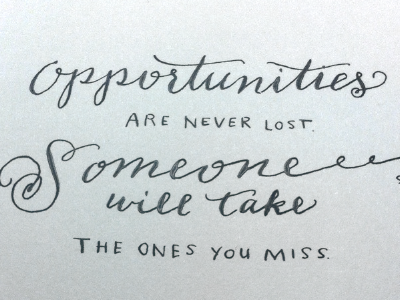 Opportunities
ARE NEVER LOST.
Someone
will take
THE ONES YOU MISS.